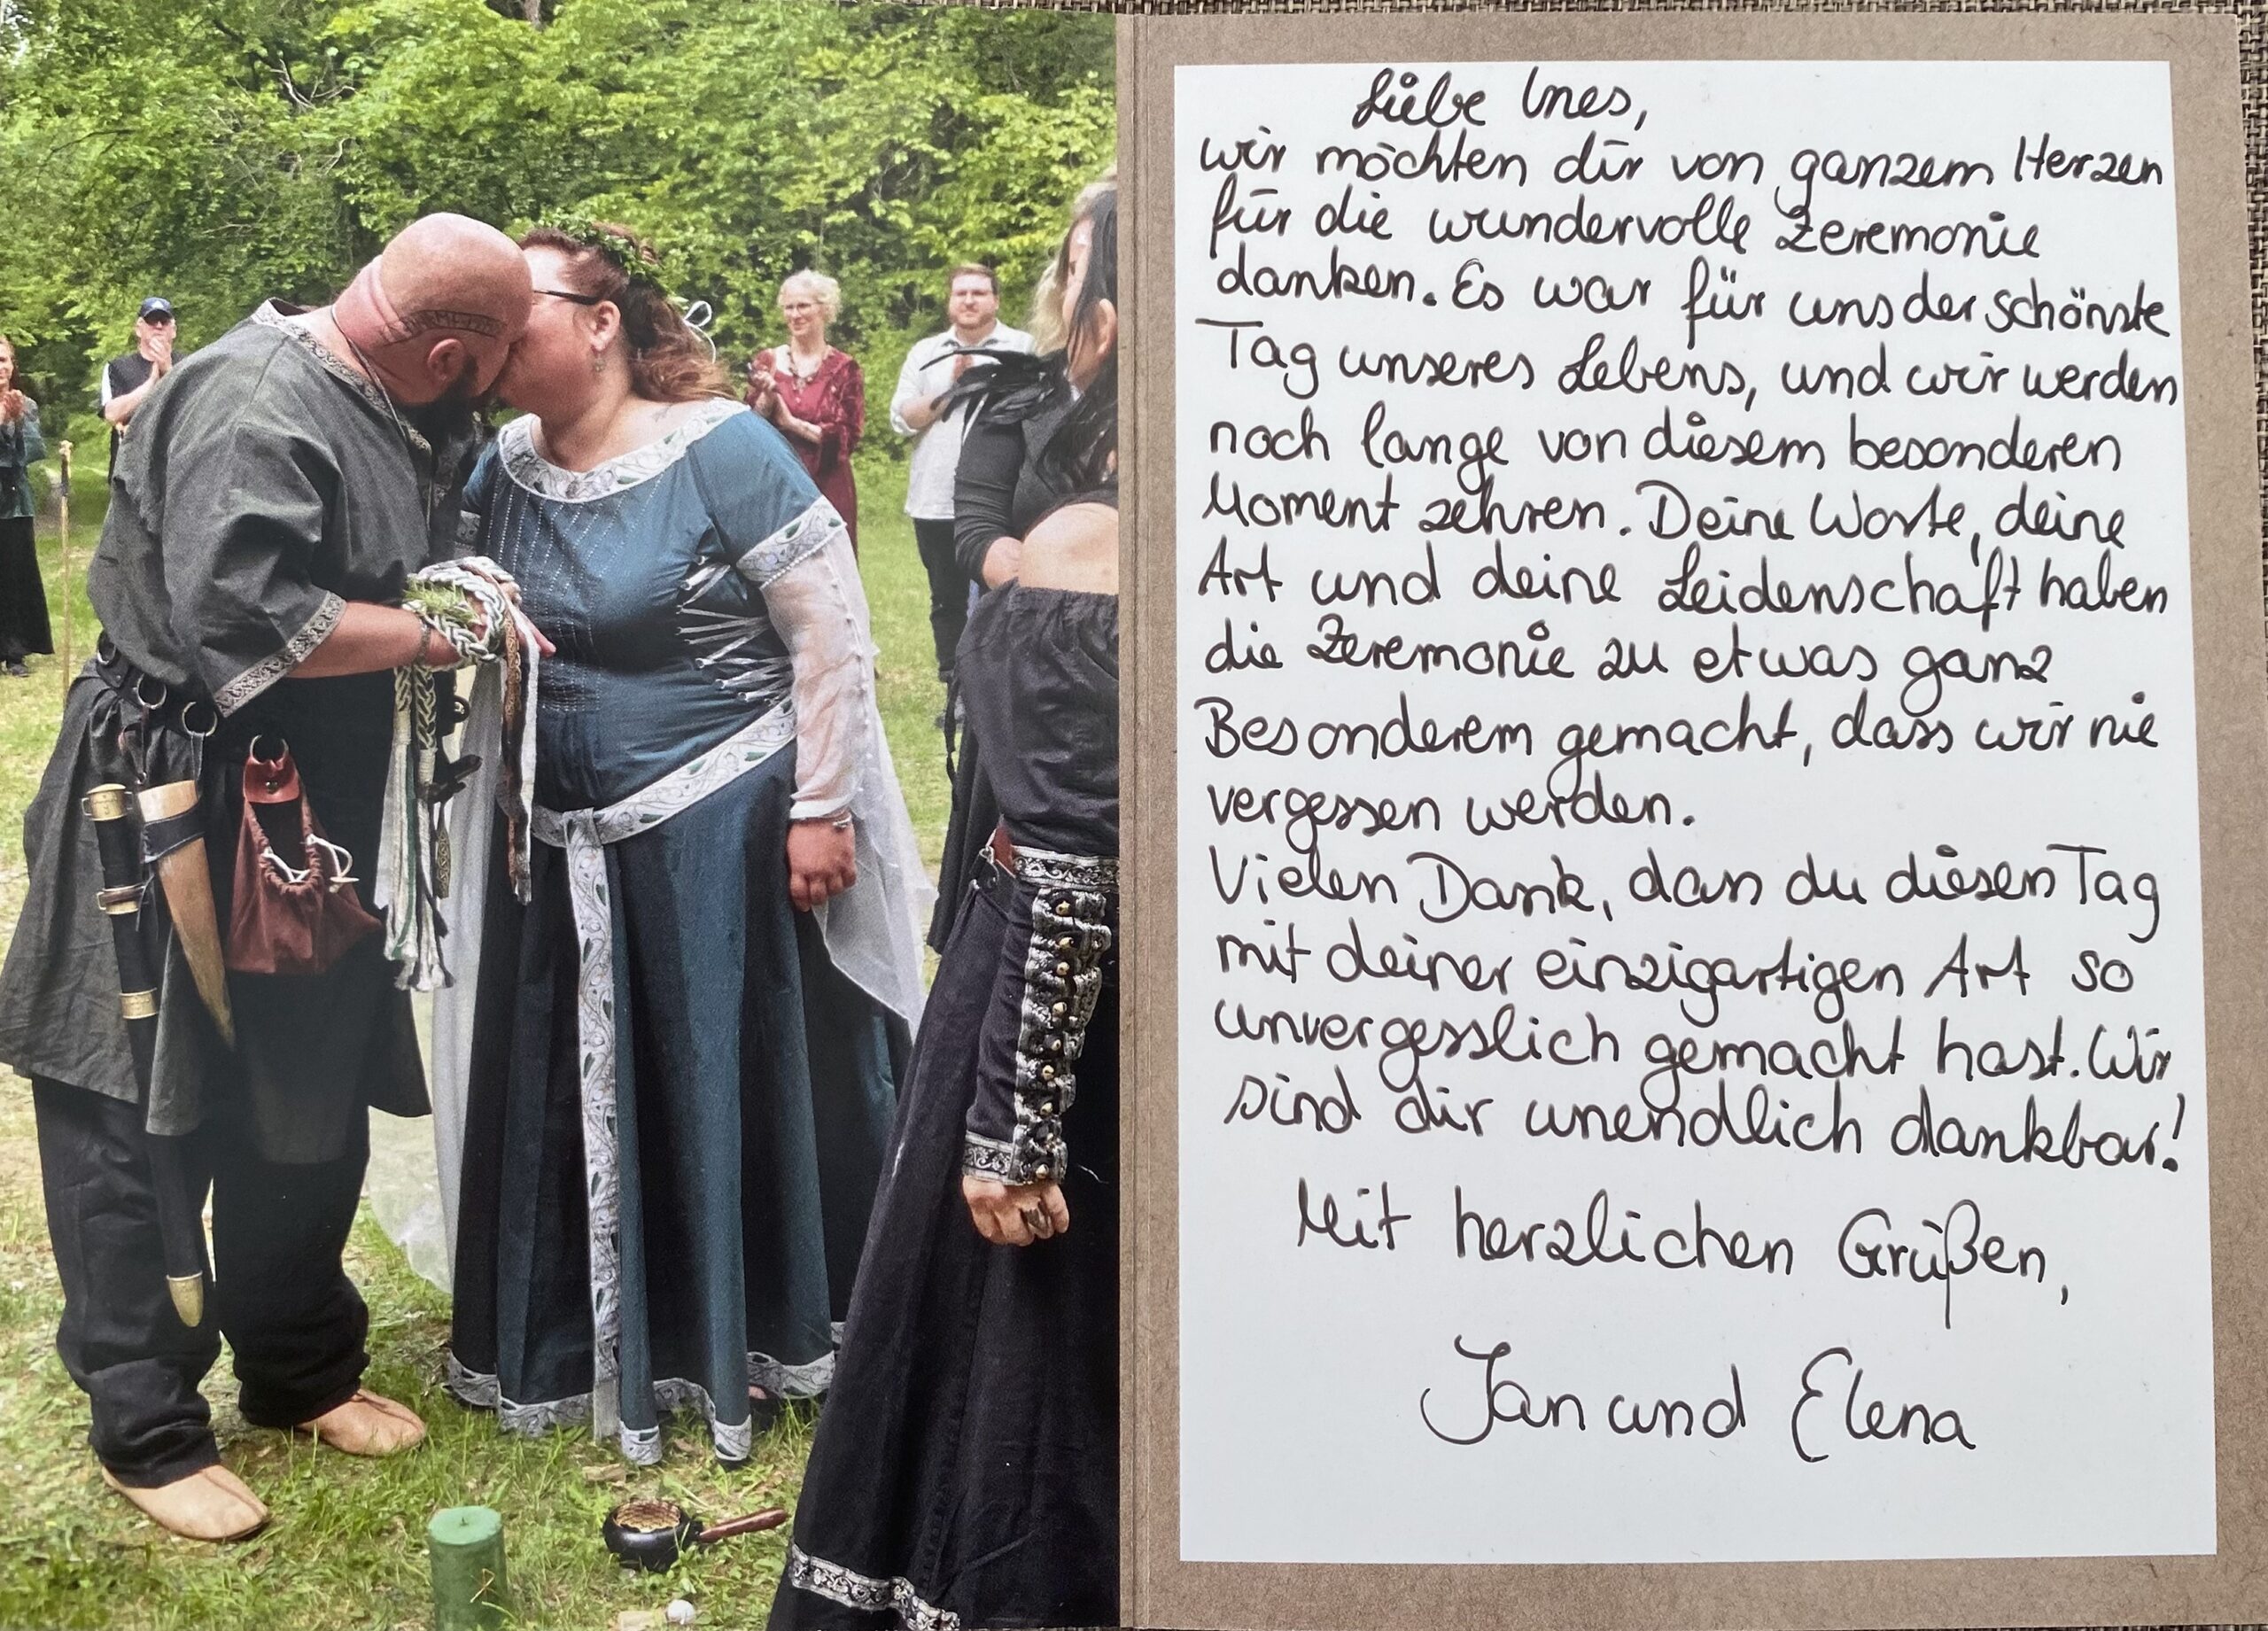 Liebe Ines,
wir möchten dir von ganzem Herzen
für die wundervolle Zeremonie
danken. Es war für uns der schönste
Tag unseres Lebens, und wir werden
noch lange von diesem besonderen
Moment zehren. Deine Worte, deine
Art und deine Leidenschaft haben
die Zeremonie zu etwas ganz
Besonderem gemacht, dass wir nie
vergessen werden.
Vielen Dank, dass du diesen Tag
mit deiner einzigartigen Art so
unvergesslich gemacht hast. Wir
sind dir unendlich dankbar!
Mit herzlichen Grüßen,
Jan und Elena